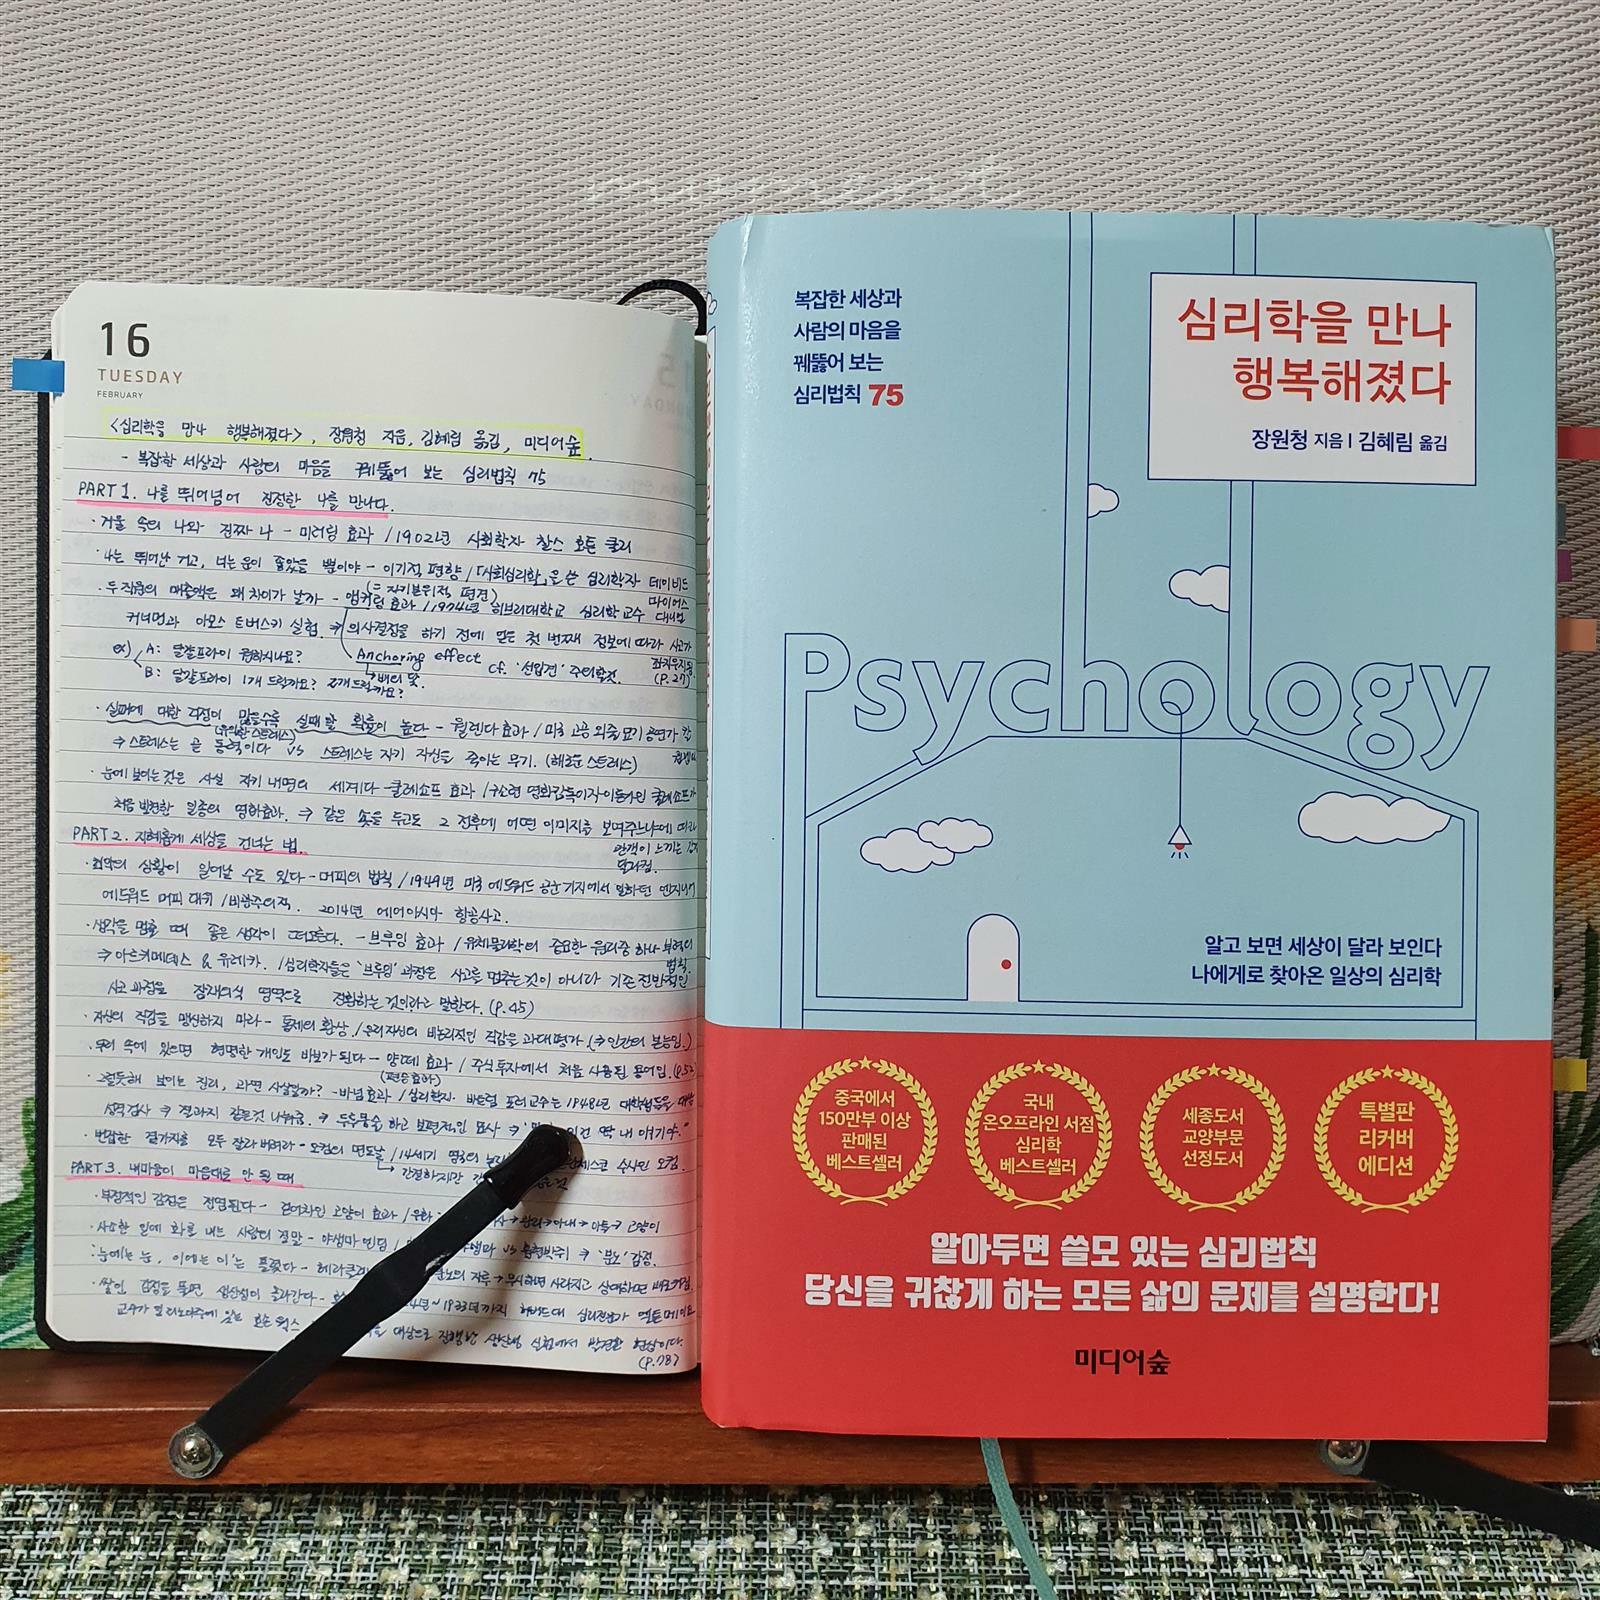 moment
16
TUESDAY
FEBRUARY
<심리학을 만나 행복해졌다>, 장원청 지음, 김혜림 옮김, 미디어숲.
- 복잡한 세상과 사람의 마음을 꿰뚫어 보는 심리법칙 75
PART 1. 나를 뛰어넘어 진정한 나를 만나다.
· 거울 속의 나와 진짜 나 - 미러링 효과 / 1902년 사회학자 찰스 호튼 쿨리
· 나는 뛰어난 거고, 너는 운이 좋았을 뿐이야 - 이기적 편향 / 「사회심리학」을 쓴 심리학자 데이비드 마이어스
(= 자기본위적 편견)
· 두 직원의 매출액은 왜 차이가 날까 - 앵커링 효과 / 1974년 히브리대학교 심리학 교수 대니얼
커너먼과 아모스 트버스키 실험. → 의사결정을 하기 전에 얻은 첫 번째 정보에 따라 사고가 좌지우지됨.
ex) A: 달걀프라이 원하시나요? Anchoring effect cf. '선입견' 주의할것. (p.27)
B: 달걀프라이 1개 드릴까요? 2개 드릴까요? → 배의 닻.
· 실패에 대한 걱정이 많을수록 실패할 확률이 높다 - 월렌다 효과 / 미국 고공 외줄타기 공연가 칼
(유익한 스트레스)
⇒ 스트레스는 곧 동력이다 vs 스트레스는 자기 자신을 죽이는 무기. (해로운 스트레스)
· 눈에 보이는 것은 사실 자기 내면의 세계다 - 쿨레쇼프 효과 / 구소련 영화감독이자 이론가인 쿨레쇼프가
처음 발견한 일종의 영화효과. ⇒ 같은 숏을 두고도 그 전후에 어떤 이미지를 보여주느냐에 따라
관객이 느끼는 감정
달라짐.
PART 2. 지혜롭게 세상을 건너는 법.
· 최악의 상황이 일어날 수도 있다 - 머피의 법칙 / 1949년 미국 에드워드 공군기지에서 일하던 엔지니어
에드워드 머피 대위 / 비관주의적. 2014년 에어아시아 항공사고.
· 생각을 멈출 때 좋은 생각이 떠오른다. - 브루잉 효과 / 유체물리학의 중요한 원리중 하나 부력의 법칙.
⇒ 아르키메데스 & 유레카. / 심리학자들은 '브루잉' 과정은 사고를 멈추는 것이 아니라 기존 전반적인
사고 과정을 잠재의식 영역으로 전환하는 것이라고 말한다. (p.45)
· 자신의 직감을 맹신하지 마라 - 통제의 환상. / 우리 자신의 비논리적인 직감은 과대평가 (⇒ 인간의 본능임.)
· 무리 속에 있으면 현명한 개인도 바보가 된다 - 양떼 효과 / 주식투자에서 처음 사용된 용어임. (p.52)
(편승효과)
· 그럴듯해 보이는 진리, 과연 사실일까? - 바넘효과 / 심리학자 버트럼 포러교수는 1948년 대학생들을 대상
성격검사 ⇒ 결과지 같은것 나눠줌. ⇒ 두루뭉술하고 보편적인 묘사 ⇒
· 번잡한 곁가지를 모두 잘라 버려라 - 오컴의 면도날 / 14세기 수사인 오컴.
→ 간결하지만
PART 3. 내마음이 마음대로 안 될 때
· 부정적인 감정은 전염된다 - 걷어차인 고양이 효과 / 우화 → 아내 → 아들 → 고양이
· 사소한 일에 화를 내는 사람의 결말 - 야생마 엔딩 / vs 흡혈박쥐 ⇒ '분노' 감정.
· '눈에는 눈, 이에는 이'는 틀렸다 - 헤라클레 자루 → 무시하면 사라지고 상대하면 배로 커짐.
· 쌓인 감정을 풀면 생산성이 올라간다 - ~1933년까지 하버드대 심리전문가 엘튼 메이요
교수가 일리노이주에 있는 호손 웍스 대상으로 진행한 생산성 실험에서 발견한 현상이다.
(p.78)
복잡한 세상과
사람의 마음을
꿰뚫어 보는
심리법칙 75
심리학을 만나
행복해졌다
장원청 지음 | 김혜림 옮김
Psychology
알고 보면 세상이 달라 보인다
나에게로 찾아온 일상의 심리학
중국에서
150만부 이상
판매된
베스트셀러
국내
온오프라인 서점
심리학
베스트셀러
세종도서
교양부문
선정도서
특별판
리커버
에디션
알아두면 쓸모 있는 심리법칙
당신을 귀찮게 하는 모든 삶의 문제를 설명한다!
미디어숲